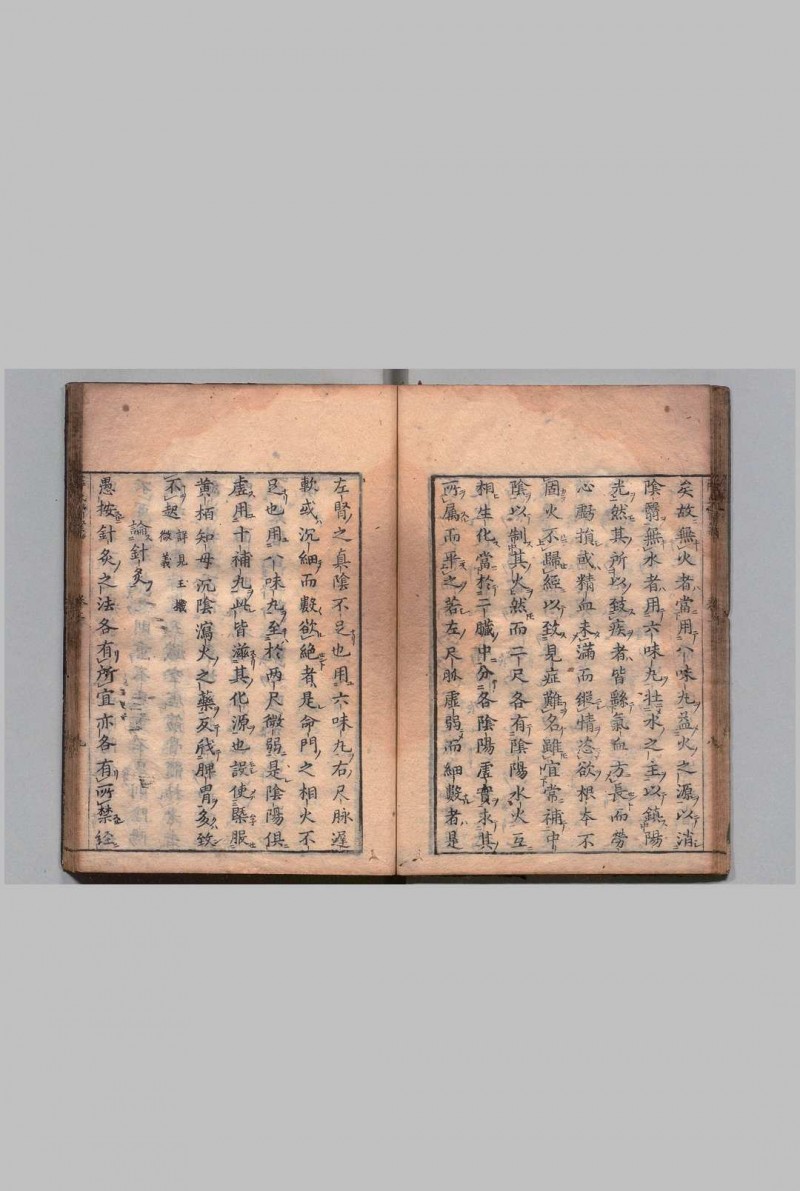 矣故無火者當用八味丸益火之源以消
陰翳無水者用六味丸壯水之主以鎮陽
光然其所以致疾者皆繇氣血方長而勞
心虧損或精血未滿而縱情恣欲根本不
固火不歸經以致見症難名雖宜常補中
陰以制其火然而二尺各有陰陽水火互
相生化當於二臟中分各陰陽虛實求其
所屬而平之若左尺脈虛弱而細數者是
左腎之真陰不足也用六味丸右尺脉遲
軟或沉細而數欲絕者是命門之相火不
足也用八味丸至於兩尺微弱是陰陽俱
虛用十補丸此皆滋其化源也誤使槩服
黃柏知母沉陰瀉火之藥反戕脾胃多致
不起詳見玉機
微義
論針灸
愚按針灸之法各有所宜亦各有所禁經